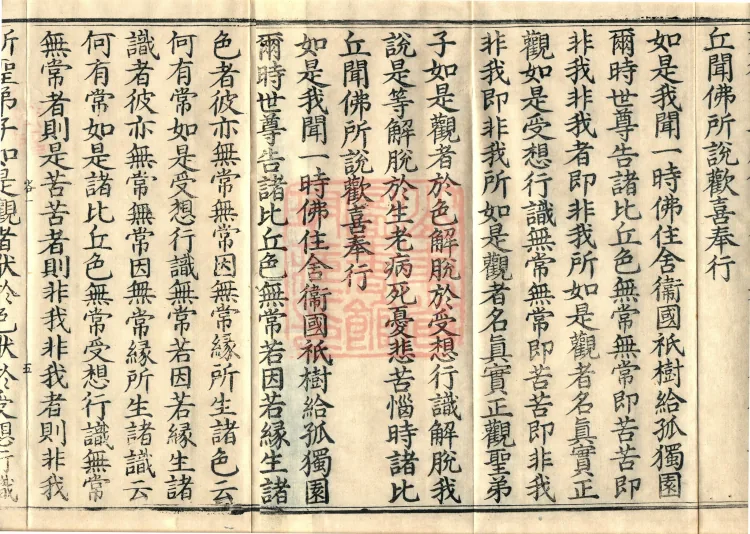 丘聞佛所說歡喜奉行
如是我聞一時佛住舍衞國祇樹給孤獨園
爾時世尊告諸比丘色無常無常即苦苦即
非我非我者即非我所如是觀者名眞實正
觀如是受想行識無常無常即苦苦即非我
非我即非我所如是觀者名眞實正觀聖弟
子如是觀者於色解脫於受想行識解脫我
說是等解脫於生老病死憂悲苦惱時諸比
丘聞佛所說歡喜奉行
如是我聞一時佛住舍衞國祇樹給孤獨園
爾時世尊告諸比丘色無常若因若緣生諸
色者彼亦無常無常因無常緣所生諸色云
何有常如是受想行識無常若因若緣生諸
識者彼亦無常無常因無常緣所生諸識云
何有常如是諸比丘色無常受想行識無常
無常者則是苦苦者則非我非我者則非我
五
所聖弟子如是觀者猒於色猒於受想行識